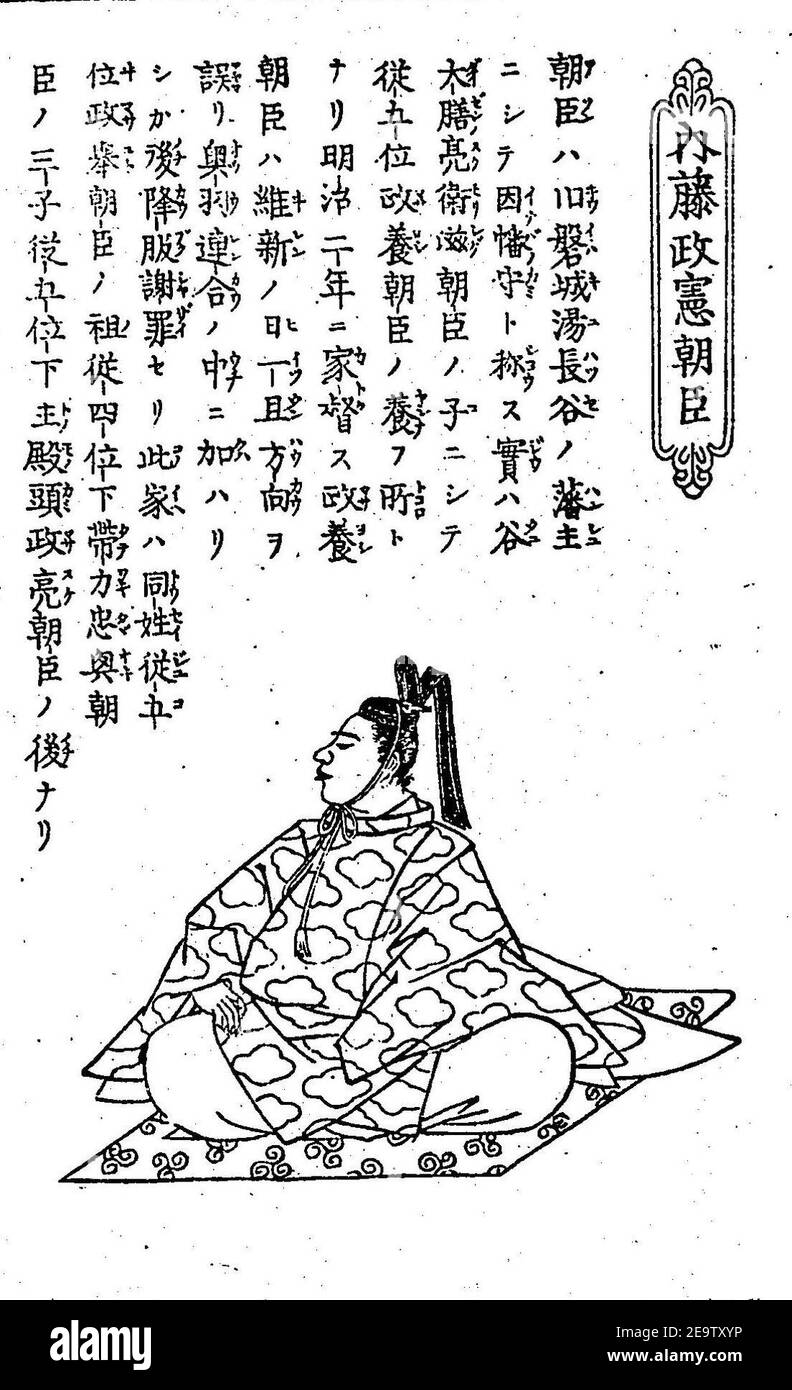 内藤政憲朝臣
朝臣ハ旧磐城湯長谷ノ藩主
ニシテ因幡守ト称ス實ハ谷
大膳亮衛滋朝臣ノ子ニシテ
従五位政養朝臣ノ養フ所ト
ナリ明治二年ニ家督ス政養
朝臣ハ維新ノ日一旦方向ヲ
誤リ奥羽連合ノ中ニ加ハリ
シカ後降服謝罪セリ此家ハ同姓従五
位政擧朝臣ノ祖従四位下帶刀忠興朝
臣ノ三子従五位下主殿頭政亮朝臣ノ後ナリ
alamy
Image ID: 2E9TXYP
www.alamy.com